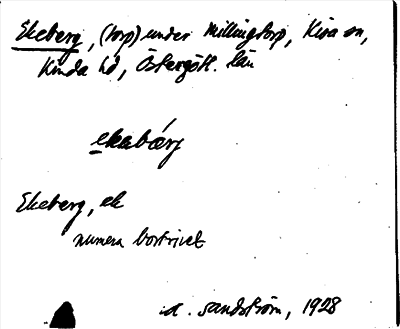 Ekeberg, (torp) under Millingtorp, Kisa sn,
Kinda hd, Östergötl. län
ekabærj
Ekeberg, ek
numera bortrivet
d. Sandström, 1928